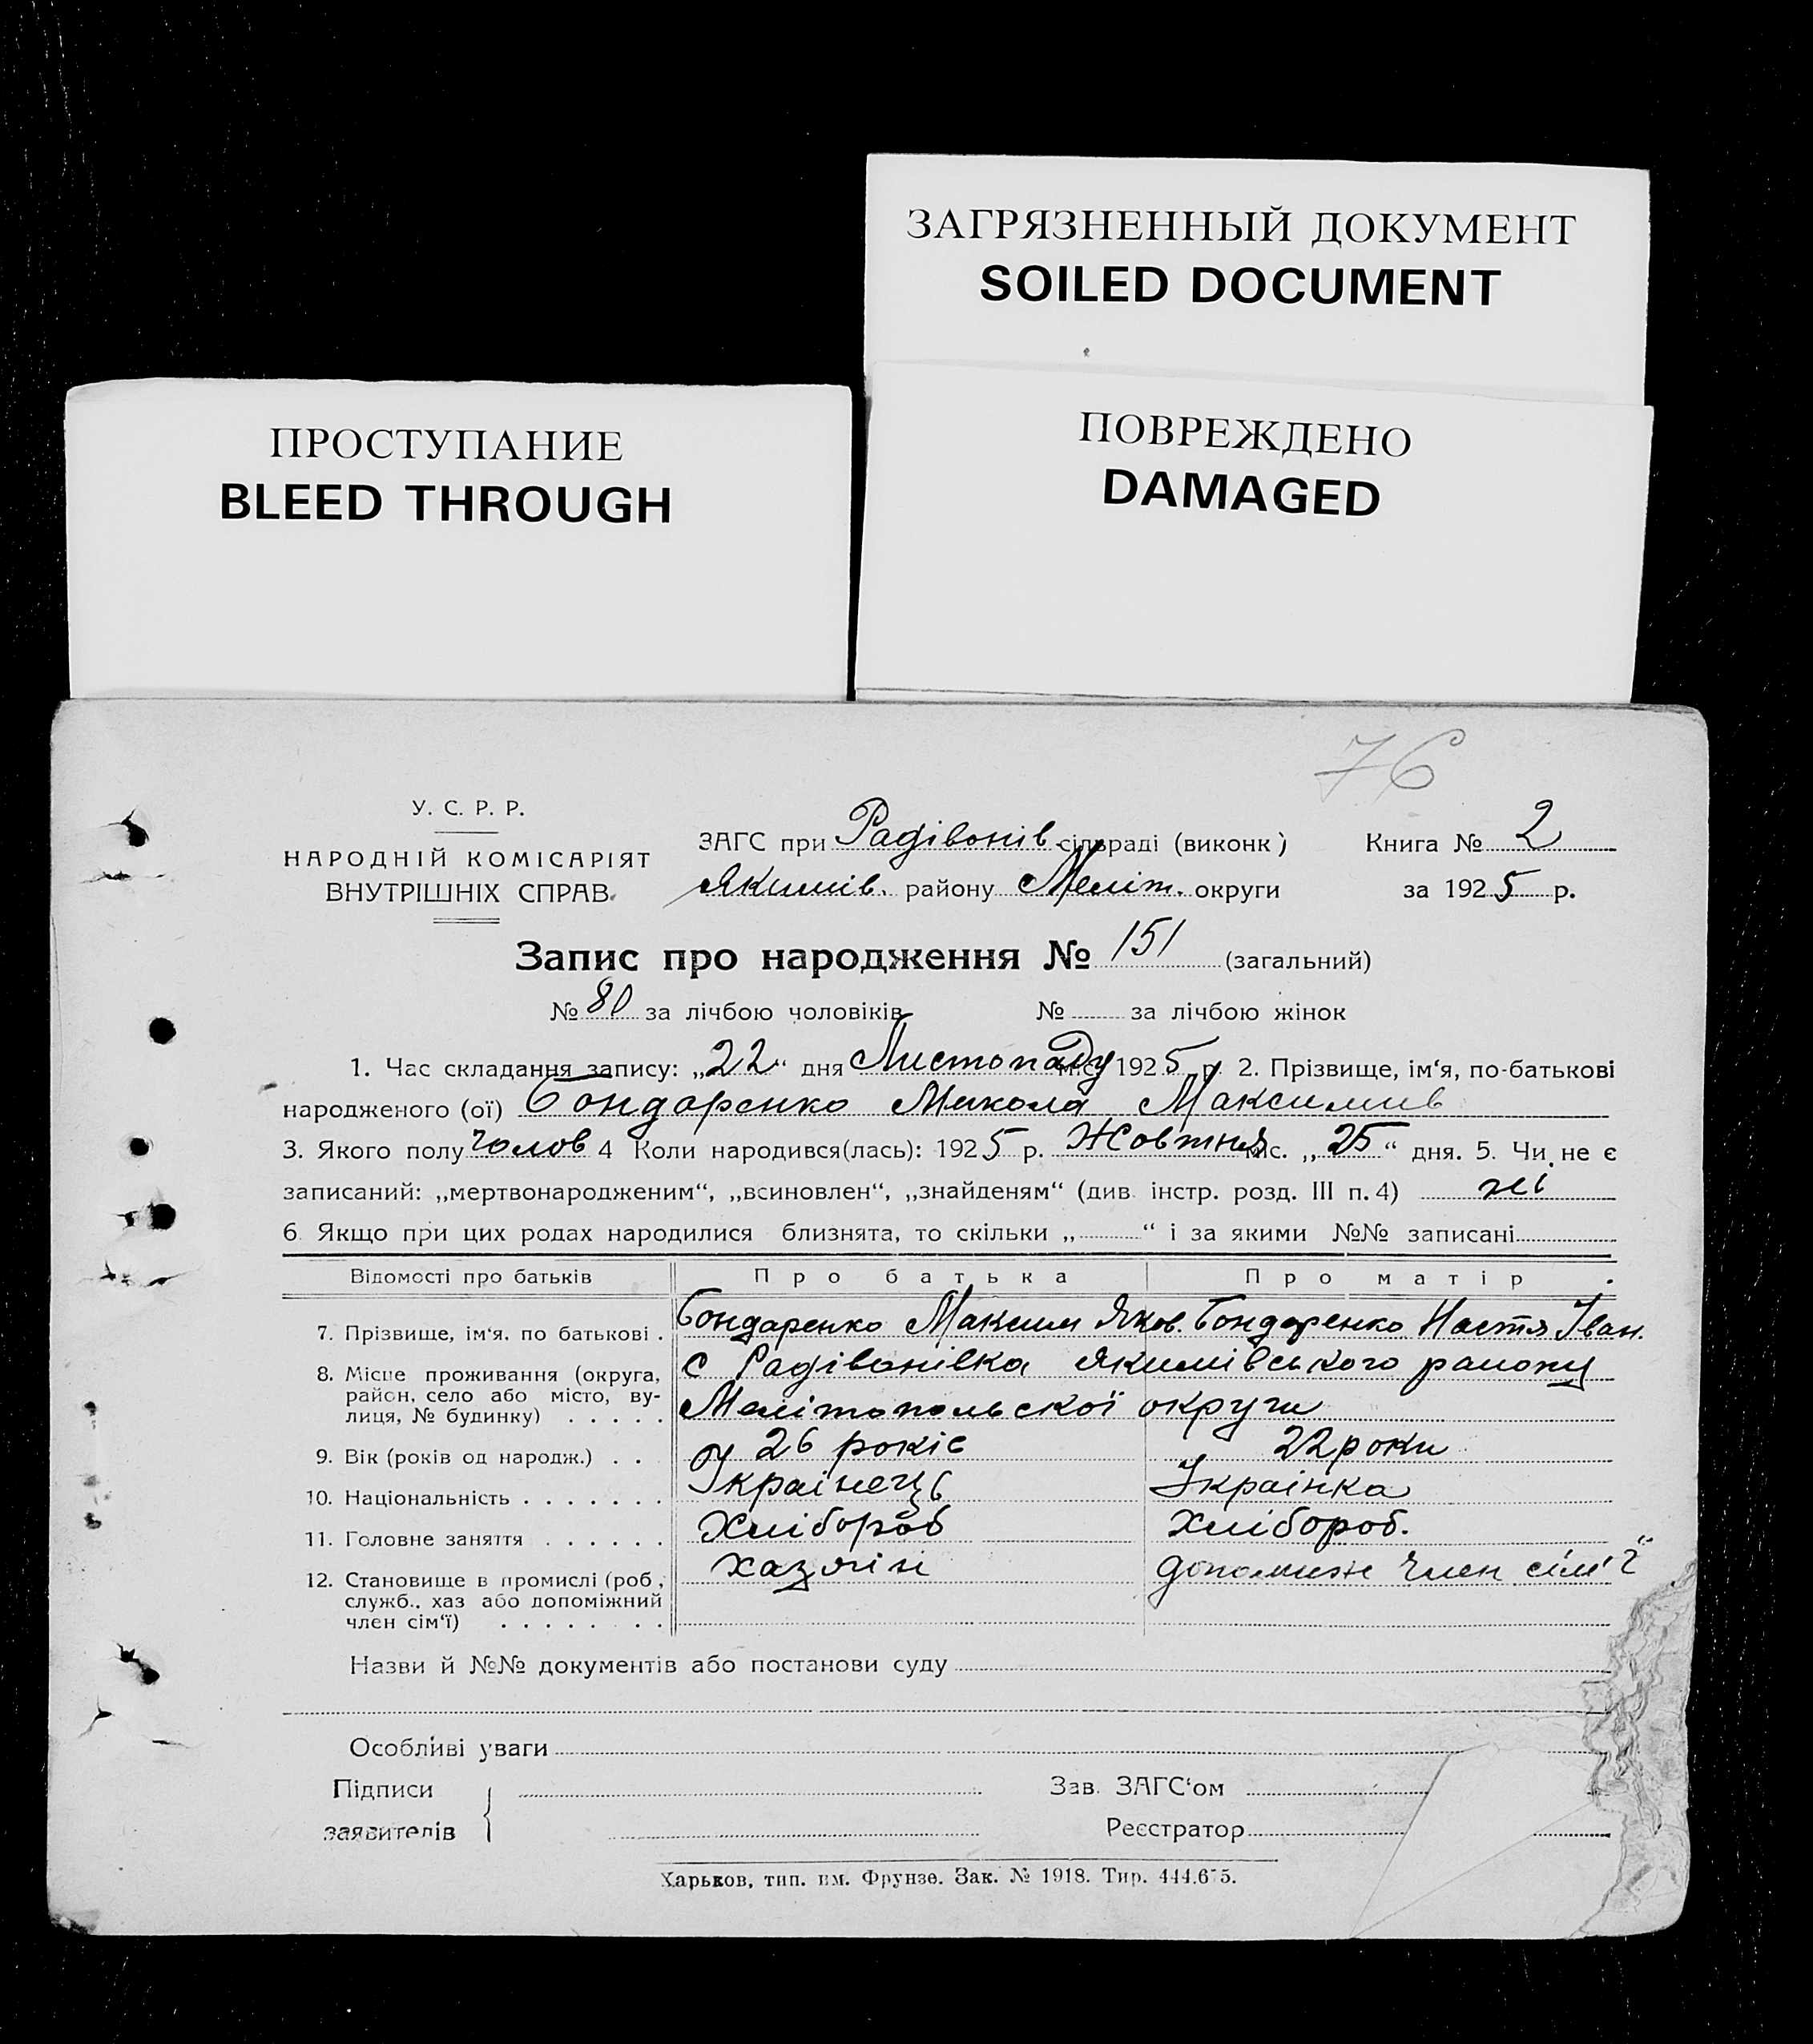 ЗАГРЯЗНЕННЫЙ ДОКУМЕНТ
SOILED DOCUMENT
ПРОСТУПАНИЕ
BLEED THROUGH
ПОВРЕЖДЕНО
DAMAGED
76
У. С. Р. Р.
НАРОДНІЙ КОМІСАРІЯТ
ВНУТРІШНІХ СПРАВ.
ЗАГС при Радівонів сільраді (виконк) Книга № 2
Якимів. району Меліт. округи за 1925 р.
Запис про народження № 151 (загальний)
№ 80 за лічбою чоловіків № за лічбою жінок
1. Час складання запису: „22“ дня Листопаду м-с. 1925 р. 2. Прізвище, ім‘я, по-батькові
народженого (ої) Бондаренко Микола Максимив
3. Якого полу чолов 4 Коли народився(лась): 1925 р. Жовтня міс. „25“ дня. 5. Чи не є
записаний: „мертвонародженим“, „всиновлен“, „знайденям“ (див. інстр. розд. III п. 4) ні
6 Якщо при цих родах народилися близнята, то скільки „ “ і за якими №№ записані
Відомості про батьків Про батька Про матір
7. Прізвище, ім‘я. по батькові . Бондаренко Максим Яков. Бондаренко Настя Іван.
8. Місце проживання (округа, с Радівонівка Якимівського району
район, село або місто, ву-
лиця, № будинку) . . . . . Мелітопольскої округи
9. Вік (років од народж.) . . . 26 років 22 роки
10. Національність . . . . . . . Українець Українка
11. Головне заняття . . . . . . Хлібороб Хлібороб.
12. Становище в промислі (роб., хазяін допоміжн член сім'ї
служб., хаз або допоміжний
член сім‘ї) . . . . . . . .
Назви й №№ документів або постанови суду
Особливі уваги
Підписи Зав. ЗАГС‘ом
заявителів Реєстратор
Харьков, тип. им. Фрунзе. Зак. № 1918. Тир. 444.675.